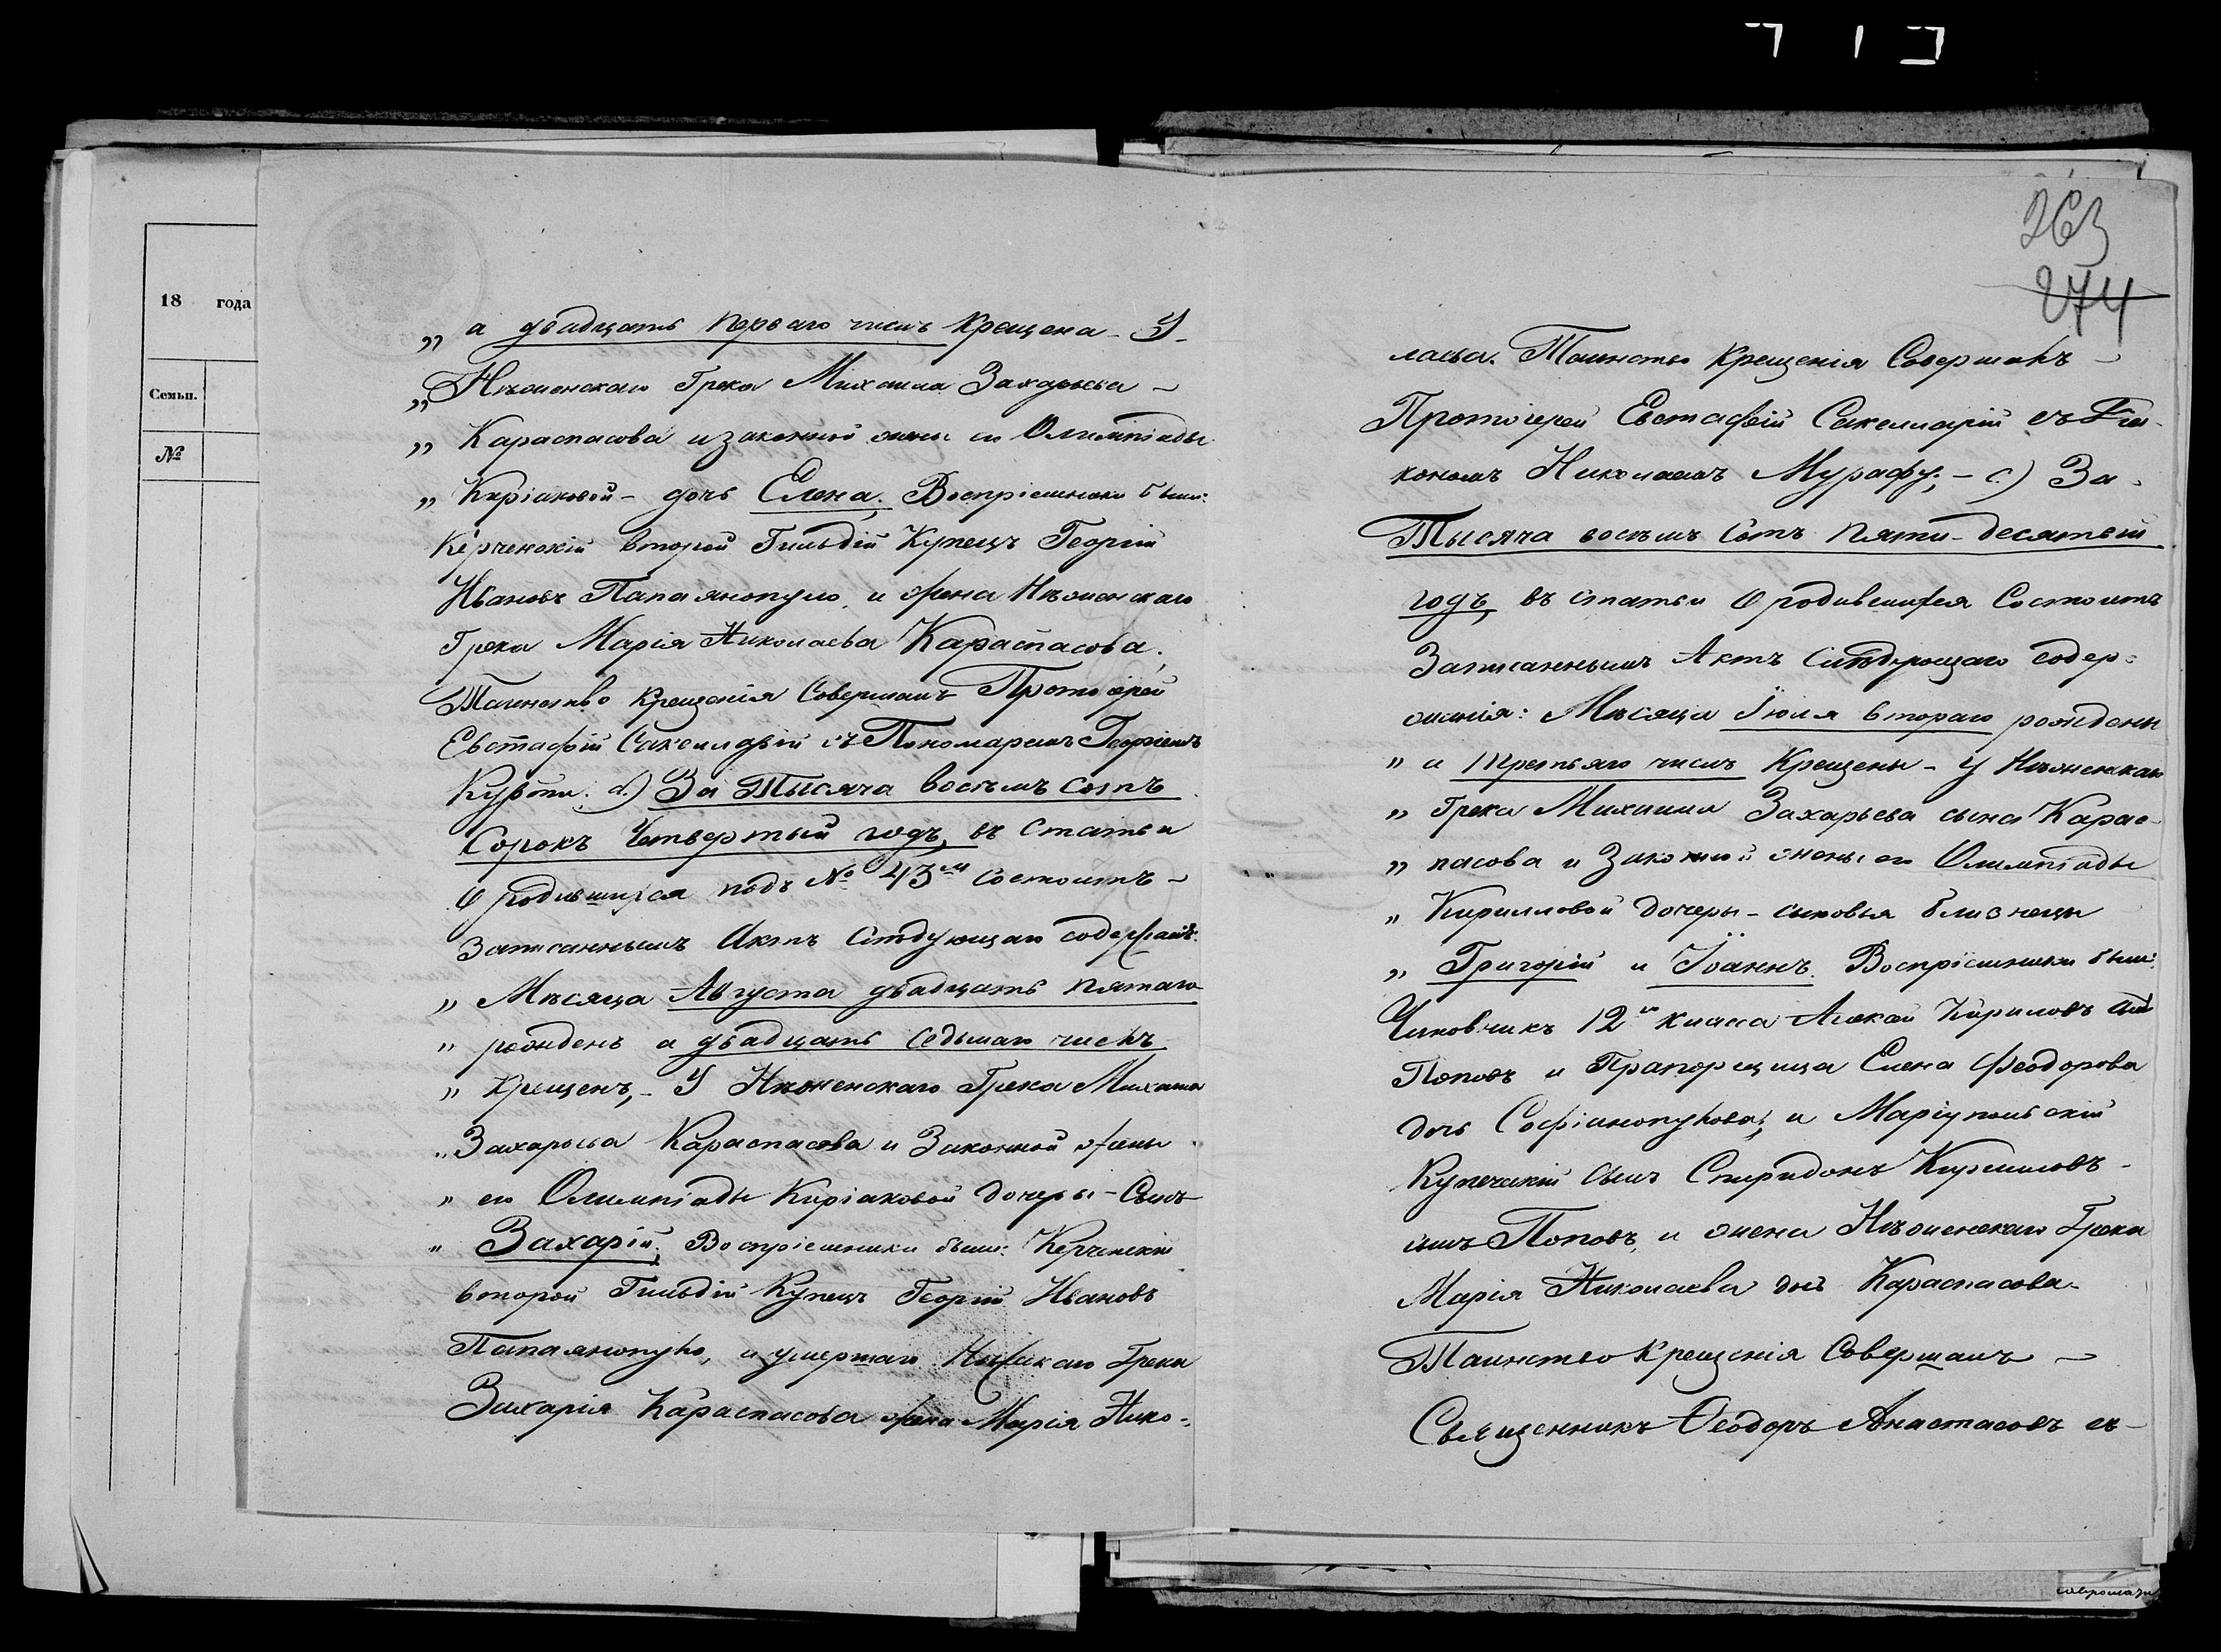 18 года
Семьи.
№
„ а двадцать перваго числъ крещена – У
„ Нѣженскаго Грека Михаила Захарьева –
„ Караспасова и законной жены его Олимпіады
„ Киріаковой – дочь Елена; Воспріемники были:
Керченскій второй Гильдіи Купецъ Георгій
Ивановъ Папаянопуло, и жена Нѣженскаго
Грека Марія Николаева Караспасова;
Таинство крещенія Совершалъ Протоіерей
Евстафій Сакелларій съ Пономаремъ Георгіемъ
d.) За Тысяча восемь сотъ
Сорокъ Четвертый годъ, въ Статьи
О родившихся подъ № 43м Состоитъ –
Записаннымъ Актъ Слѣдующаго содержанія:
„ Мѣсяца Августа двадцать пятаго
„ рожденъ а двадцать седьмаго числъ
„ Крещенъ, – У Нѣженскаго Грека Михаила
„ Захарьева Караспасова и Законной жены
„ его Олимпіады Киріаковой дочери – Сынъ
„ Захарій; Воспріемники были: Керченскій
второй Гильдіи Купецъ Георгій Ивановъ
Папаянопуло, и умершаго Нѣжскаго Грека
Захарія Караспасова жена Марія Нико-
263
274
лаева. Таинство Крещенія Совершалъ –
Протоіерей Евстафій Сакелларій съ Діа-
кономъ Николаемъ Мурафу; – e.) За
Тысяча восемь Сотъ Пяти-десятый
годъ, въ статьи О родившихся Состоитъ
Записаннымъ Актъ Слѣдующаго содер-
жанія: Мѣсяца Іюля втораго рождены
„ и третьяго числъ Крещены – у Нѣженскаго
„ Грека Михаила Захарьева сына Карас-
„ пасова и Законной жены его Олимпіады
„ Кирилловой дочери – сыновья близнецы
„ Григорій и Іоаннъ. Воспріемники были:
Чиновникъ 12го класса Алекси Кириловъ
Поповъ и Прапорщица Елена Феодорова
дочь Софіанопулова; и Маріупольскій
Купеческій Сынъ Спиридонъ Кирилловъ –
сынъ Поповъ, и жена Нѣженскаго Грека
Марія Николаева дочь Караспасова –
Таинство Крещенія Совершалъ –
Священникъ Ѳеодоръ Анастасовъ съ –